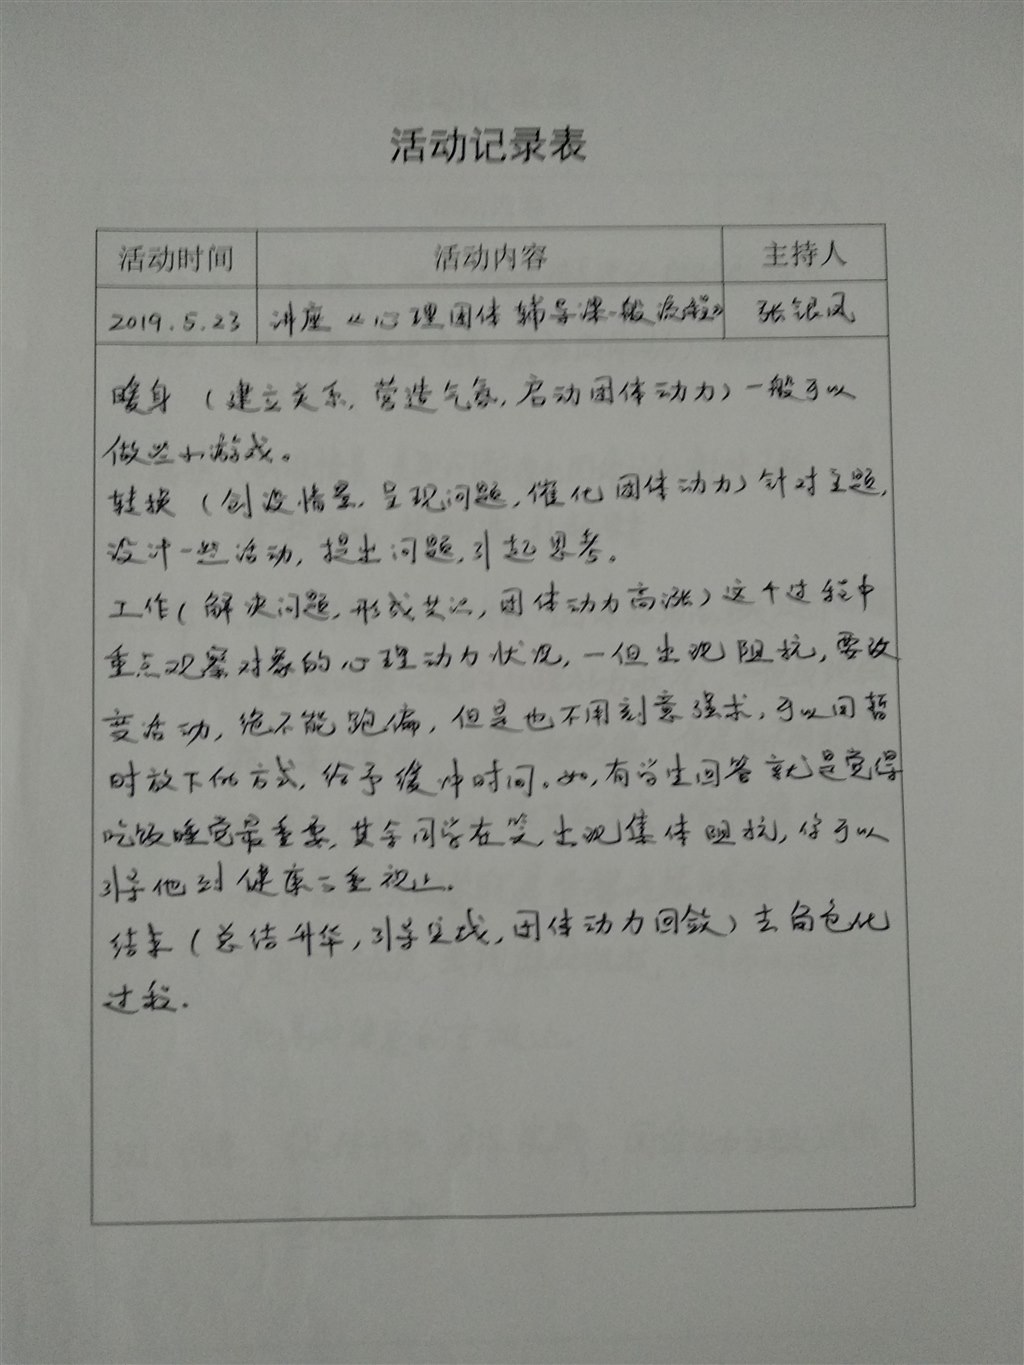 活动记录表
活动时间 活动内容 主持人
2019.5.23 讲座《心理团体辅导课一般流程》 张银凤
暖身（建立关系，营造气氛，启动团体动力）一般可以
做些小游戏。
转换（创设情景，呈现问题，催化团体动力）针对主题，
设计一些活动，提出问题，引起思考。
工作（解决问题，形成共识，团体动力高涨）这个过程中
重点观察对象的心理动力状况，一但出现阻抗，要改
变活动，绝不能跑偏，但是也不用刻意强求，可以用暂
时放下的方式，给予缓冲时间。如，有学生回答就是觉得
吃饭睡觉最重要，其余同学在笑，出现集体阻抗，你可以
引导他到健康之重视上。
结束（总结升华，引导实践，团体动力回敛）去角色化
过程.